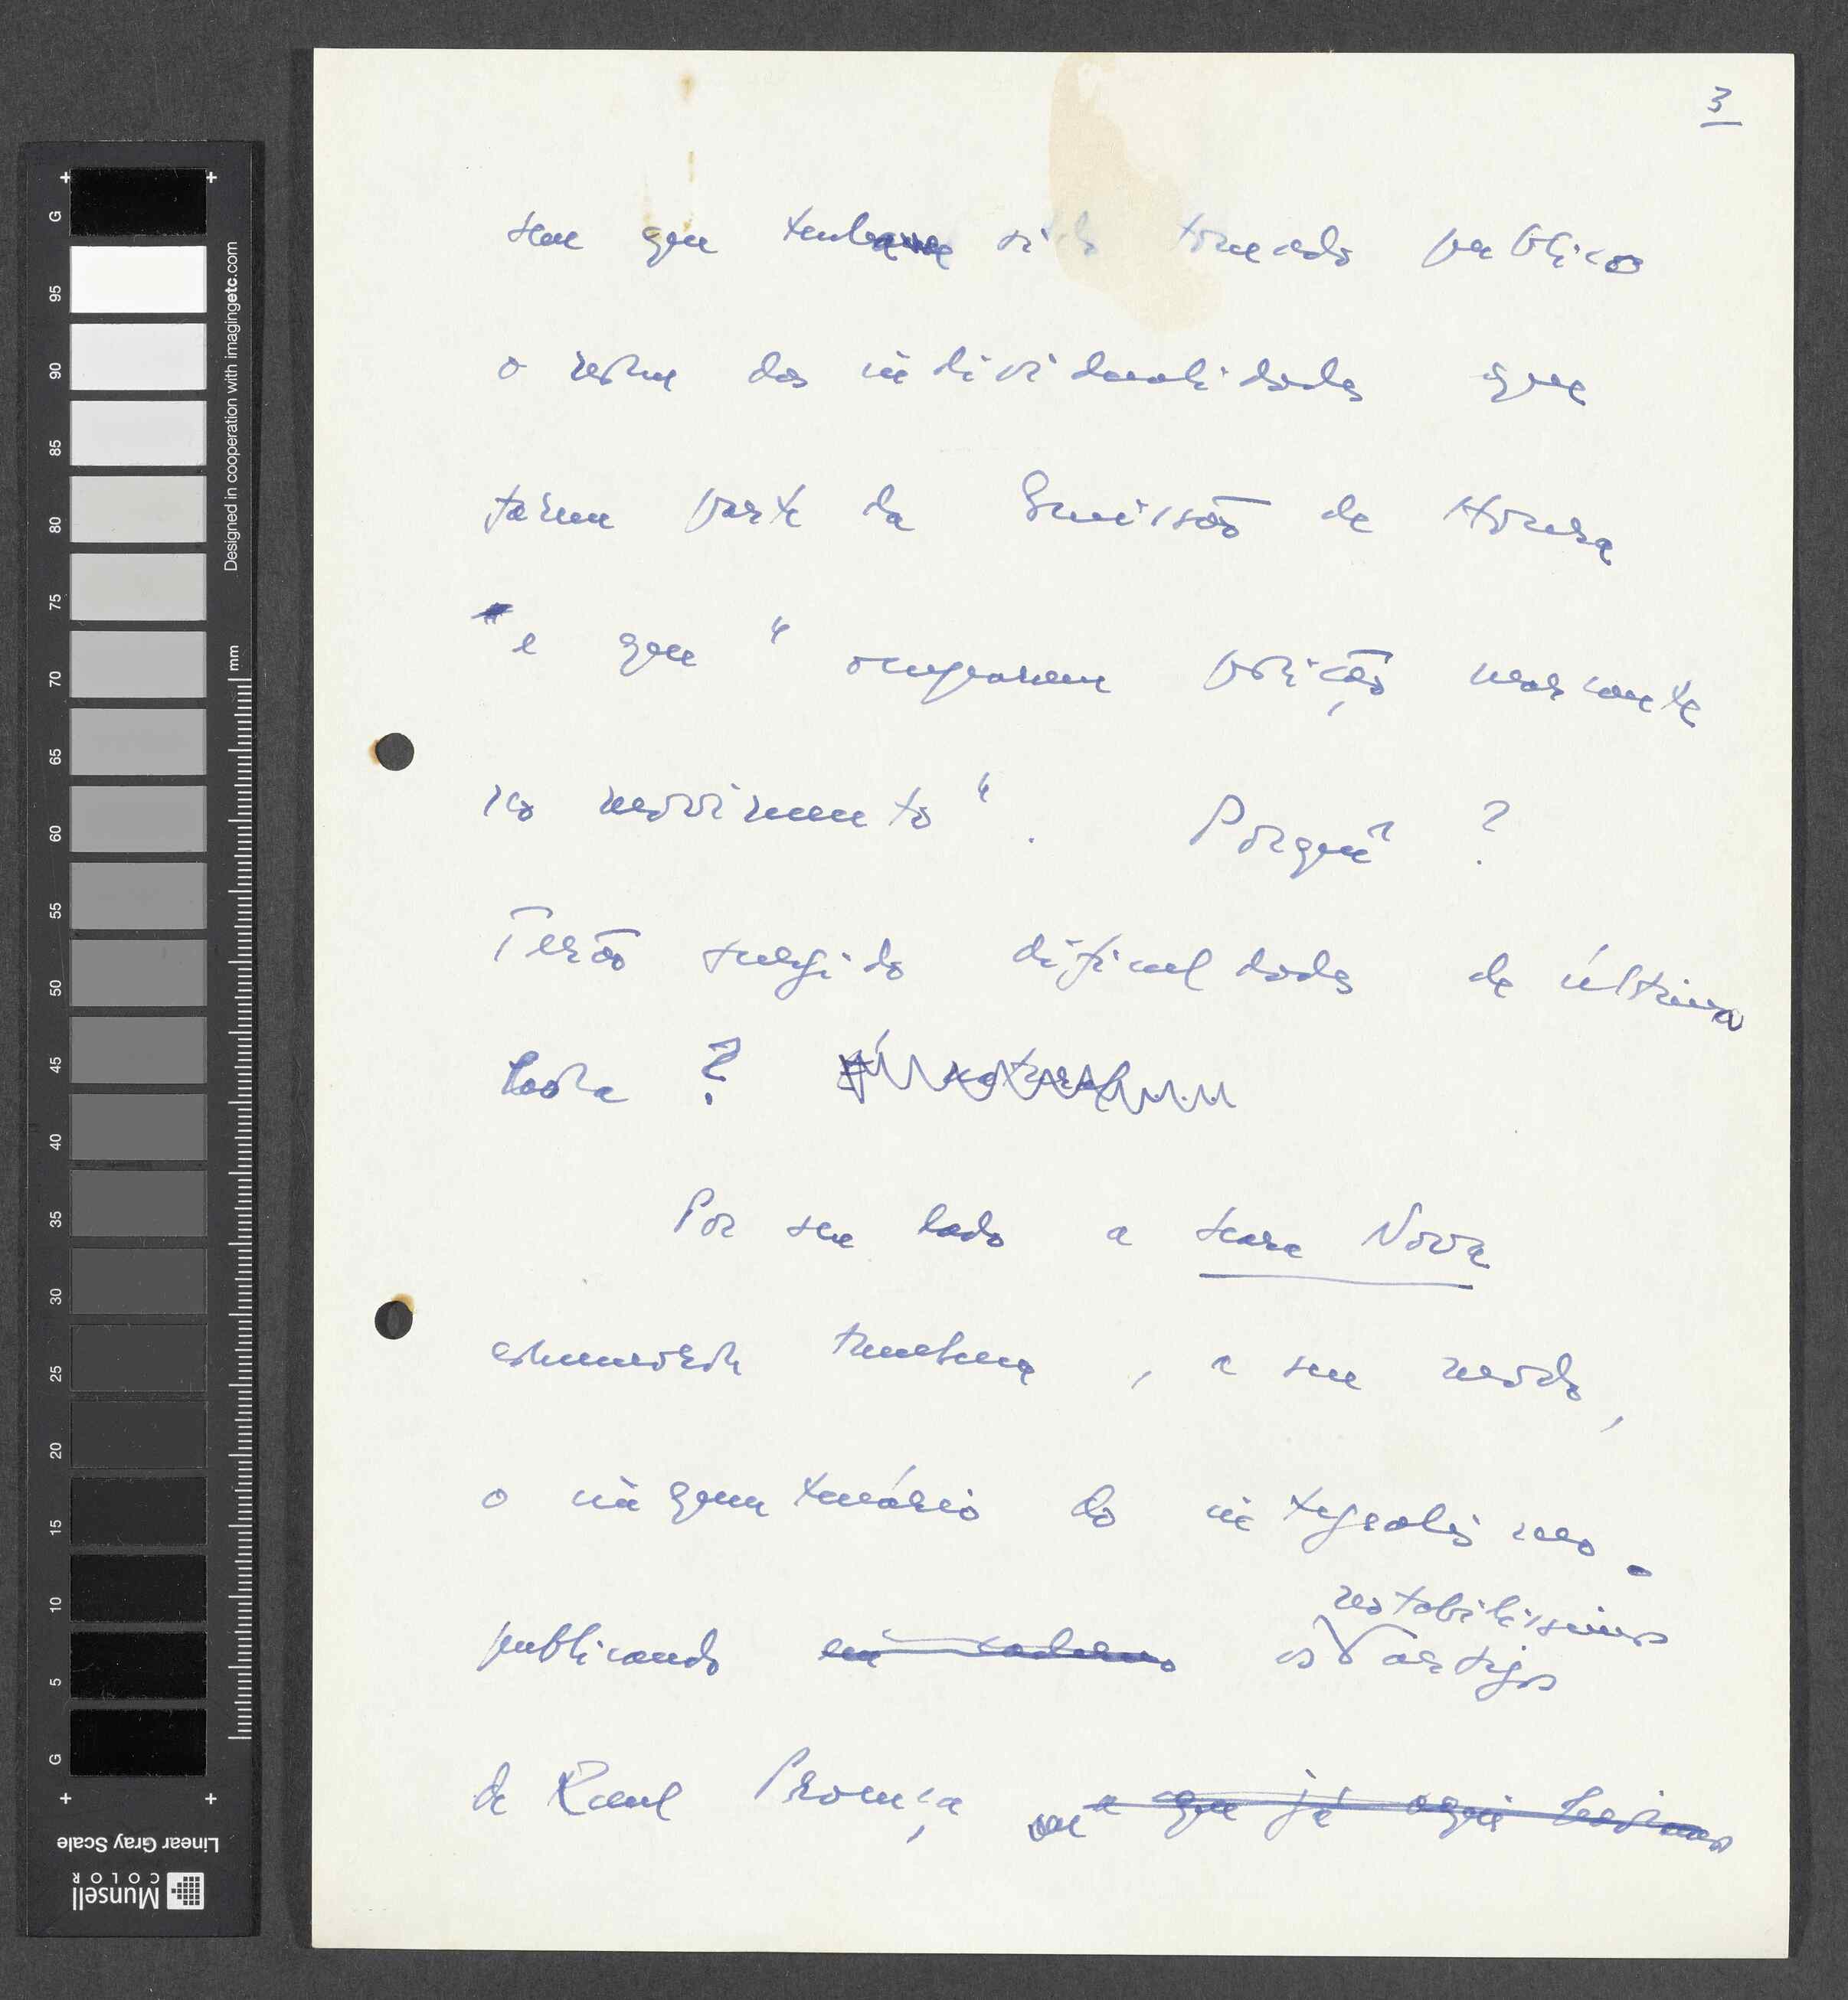 3
sem que tenha sido tornado público
o nome das individualidades que
farão parte da Comissão de Honra
e que "ocuparam posição marcante
no movimento". Porquê?
Terão surgido dificuldades de última
hora? É natural
Por seu lado a Seara Nova
comemora também, a seu modo,
o cinquentenário do integralismo
notabilíssimos
publicando os artigos
de Raul Proença a que já aqui
G
95
90
85
80
75
70
65
60
55
50
45
40
35
30
25
20
15
10
5
G
mm
Designed in cooperation with imagingetc.com
Linear Gray Scale
Munsell
COLOR